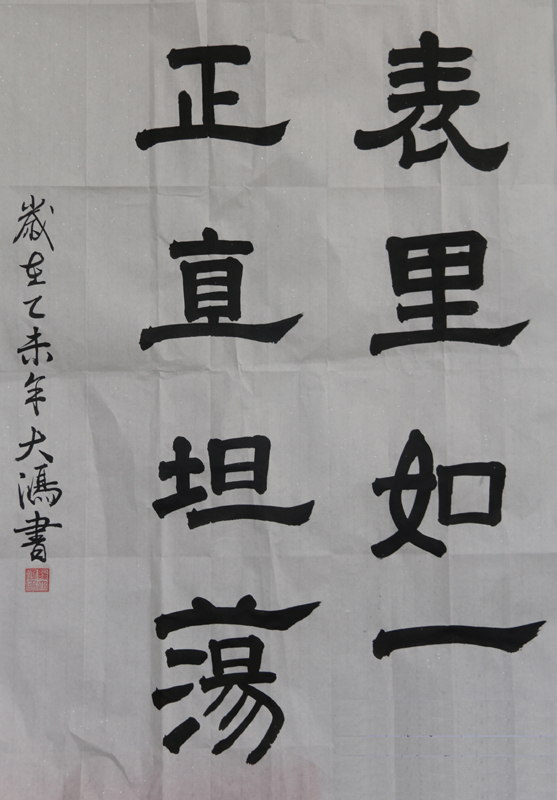 表里如一
正直坦蕩
歲在乙未年大鴻書